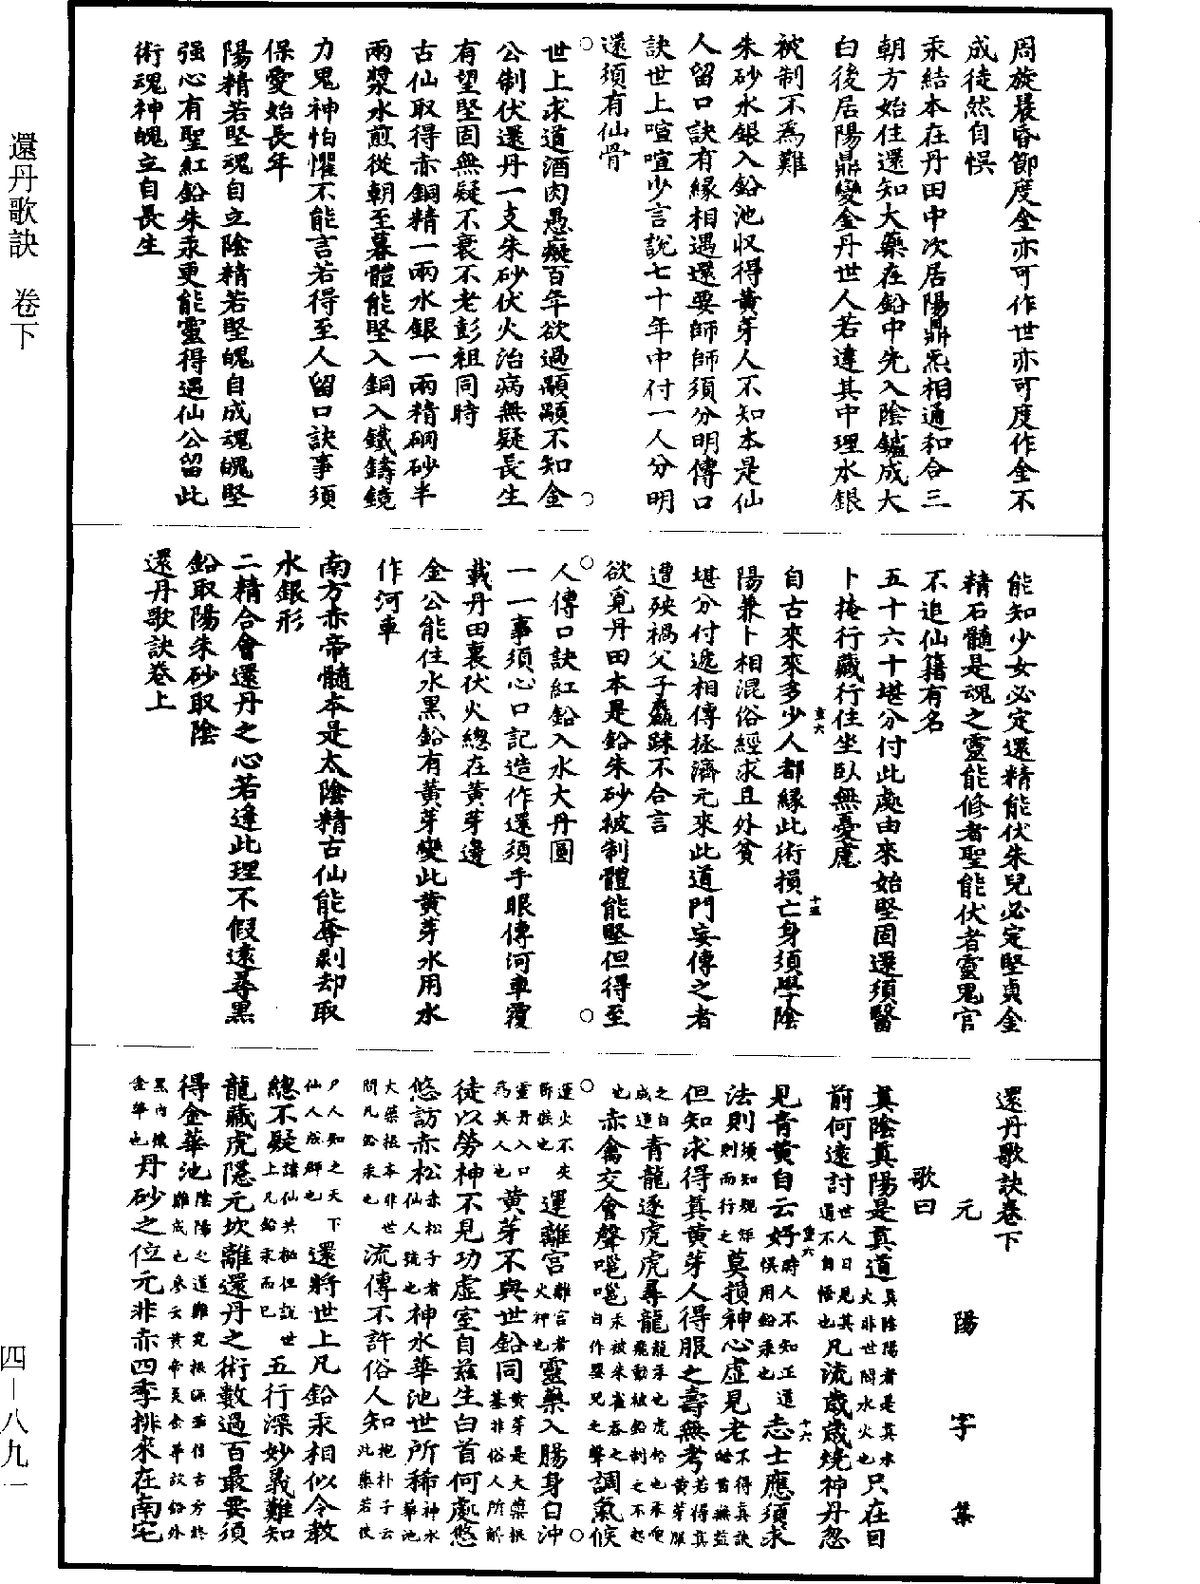 還丹歌訣 卷下
四—八九一
周旋晨昏節度全亦可作世亦可度作全不
成徒然自悞
汞結本在丹田中次居陽鼎炁相通和合三
朝方始住還知大藥在鉛中先入陰鑪成大
白後居陽鼎變金丹世人若違其中理水銀
被制不爲難
朱砂水銀入鉛池收得黄芽人不知本是仙
人留口訣有緣相遇還要師師須分明傳口
訣世上喧喧少言說七十年中付一人分明
還須有仙骨
世上求道酒肉愚癡百年欲過顒顒不知金
公制伏還丹一支朱砂伏火治病無疑長生
有望堅固無疑不衰不老彭祖同時
古仙取得赤銅精一兩水銀一兩精硇砂半
兩漿水煎從朝至暮體能堅入銅入鐵鑄鏡
力鬼神怕懼不能言若得至人留口訣事須
保愛始長年
陽精若堅魂自立陰精若堅魄自成魂魄堅
强心有聖紅鉛朱汞更能靈得遇仙公留此
術魂神魄立自長生
能知少女必定還精能伏朱兒必定堅貞金
精石髓是魂之靈能修者聖能伏者靈鬼官
不追仙籍有名
五十六十堪分付此處由來始堅固還須醫
卜掩行藏行住坐臥無憂慮
自古來來多少人都緣此術損亡身須學陰
陽兼卜相混俗經求且外貧
堪分付遞相傳拯濟元來此道門妄傳之者
遭殃禍父子麤踈不合言
欲覓丹田本是鉛朱砂被制體能堅但得至
人傳口訣紅鉛入水大丹圓
一一事須心口記造作還須手眼傳河車覆
載丹田裏伏火總在黄芽邊
金公能住水黑鉛有黄芽變此黄芽水用水
作河車
南方赤帝髓本是太陰精古仙能奪剥却取
水銀形
二精合會還丹之心若違此理不假遠尋黑
鉛取陽朱砂取陰
還丹歌訣卷上
還丹歌訣卷下
元陽子集
歌曰
真陰真陽是真道真陰陽者是真水火非世間水火也只在目
前何遠討世人日見其道不自悟也凡流歲歲燒神丹忽
見青黄自云好時人不知正道悞用鉛汞也志士應須求
法則須知規矩則而行之莫損神心虛見老不得真訣皓首無益
但知求得真黄芽人得服之壽無考若得真黄芽服
之白日成道青龍逐虎虎尋龍龍汞也虎鉛也汞飛飛動被鉛制之不起
也赤禽交會聲嗈嗈汞被朱雀吞之自作嬰兒之聲調氣候
運火不失節候也運離宮離宮者火神也靈藥入腸身白沖
靈丹入口爲真人也黄芽不與世鉛同黄芽是大藥根基非俗人所解
徒以勞神不見功虛室自兹生白首何處悠
悠訪赤松赤松子者仙人號也神水華池世所稀神水華池
大藥根本非世間凡鉛汞也流傳不許俗人知抱朴子云此藥若彼
尸人知之天下仙人成群也還將世上凡鉛汞相似令教
總不疑諸仙共秘但說世上凡鉛汞而已五行深妙義難知
龍藏虎隱元坎離還丹之術數過百最要須
得金華池陰陽之道難究根源並信古方終難成也參玄黄帝美金華故鉛外
黑內懷金華也丹砂之位元非赤四季排來在南宅